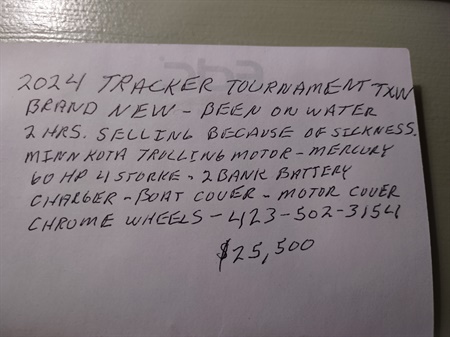 2024 TRACKER TOURNAMENT TXW
BRAND NEW - BEEN ON WATER
2 HRS. SELLING BECAUSE OF SICKNESS.
MINN KOTA TROLLING MOTOR - MERCURY
60 HP 4 STORKE - 2 BANK BATTERY
CHARGER - BOAT COVER - MOTOR COVER
CHROME WHEELS - 423-502-3154
$25,500